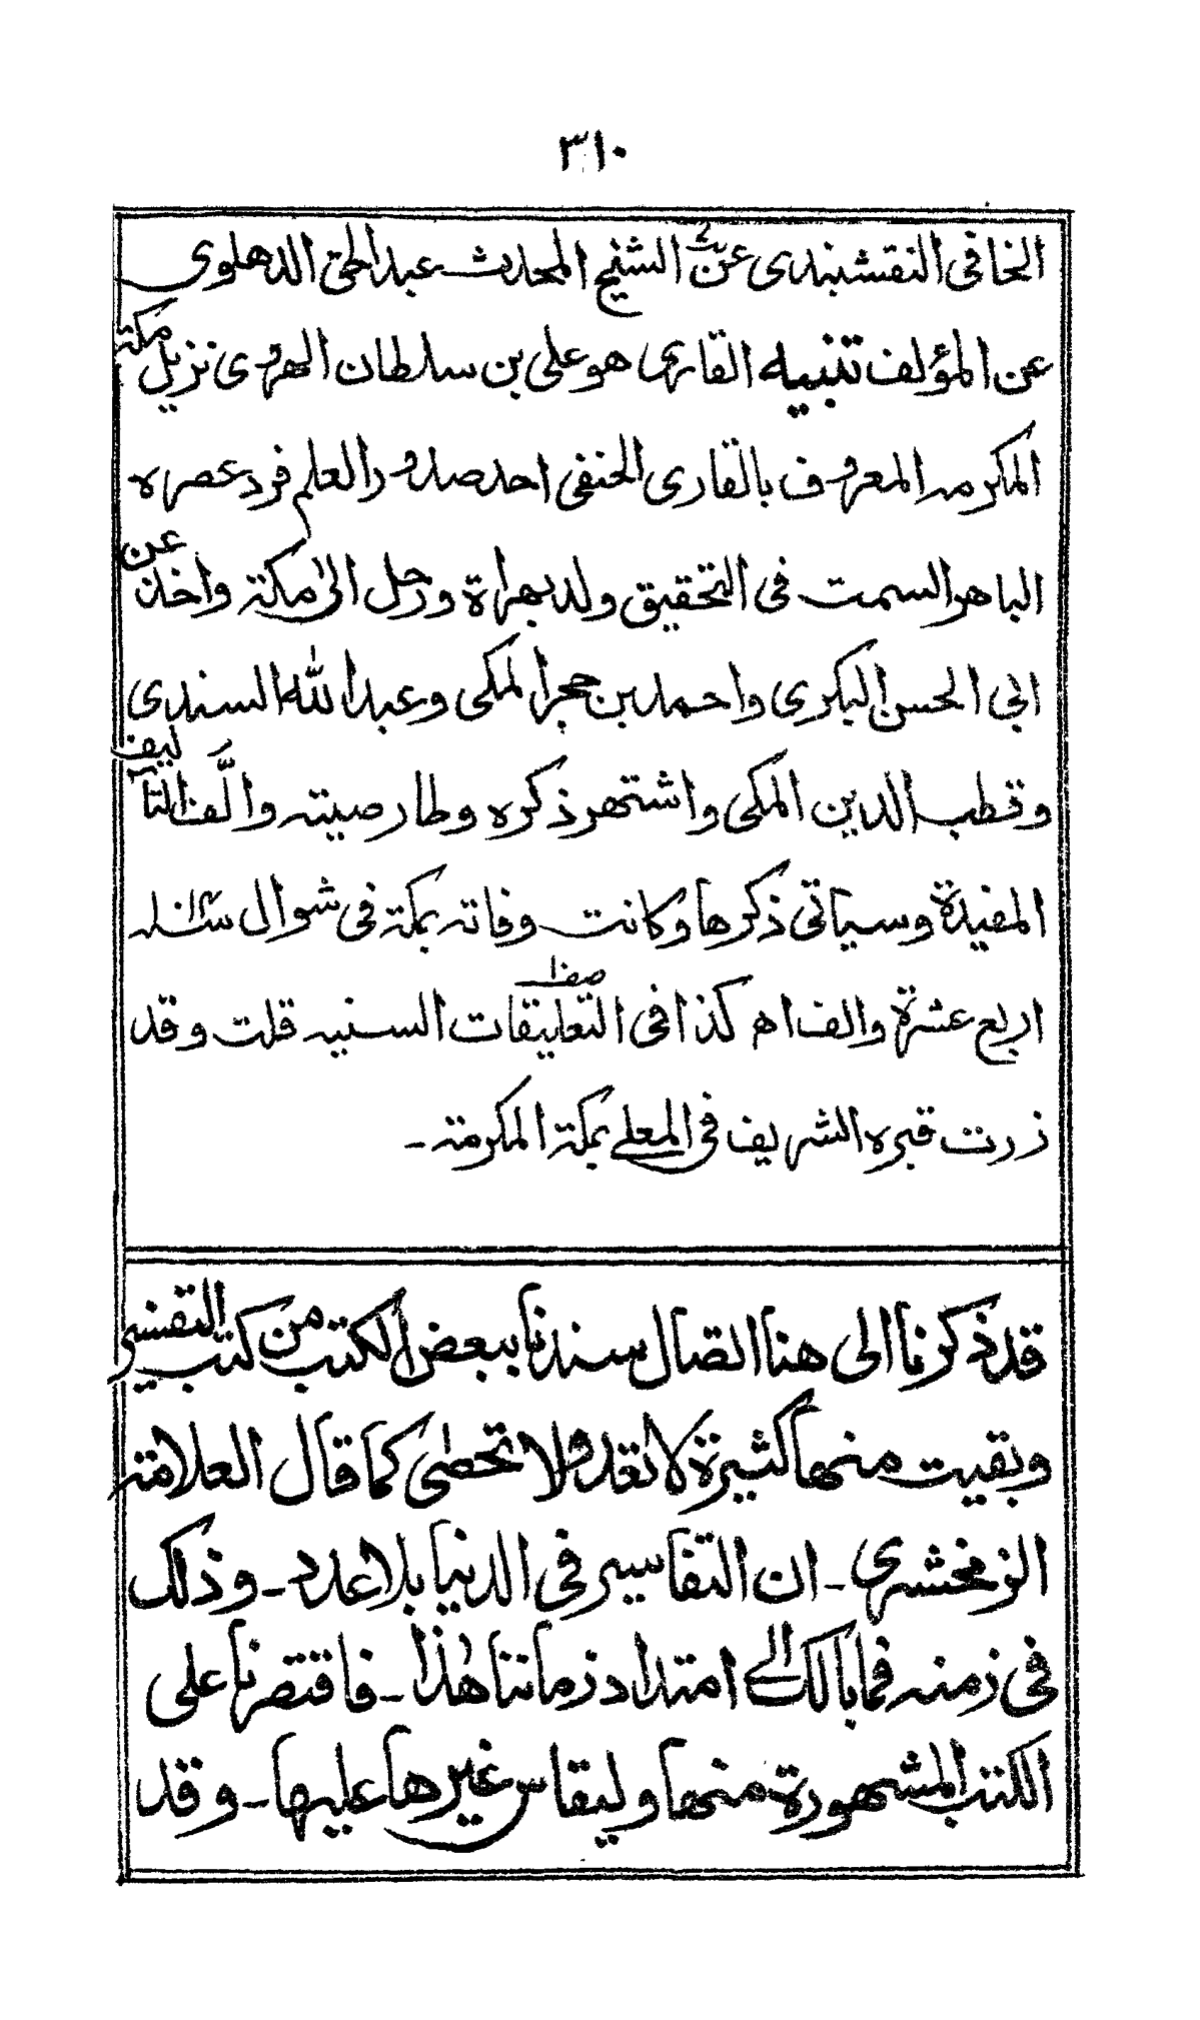 ٣١٠
الخافی النقشبندی عن الشیخ المحدث عبدالحق الدهلوی
عن المؤلف تنبیه القاری هو علی بن سلطان الهروی نزیل مکة
المکرمه المعروف بالقاری الحنفی احد صدور العلم فرد عصره
الباهر السمت فی التحقیق ولد بهراة ورحل الیٰ مکة واخذ عن
ابی الحسن البکری واحمد بن حجر المکی وعبدالله السندی
وقطب الدین المکی واشتهر ذکره وطار صیته والَّف التآلیف
المفیدة وسیاتی ذکرها وکانت وفاته بمکة فی شوال سنة ١٠١٤
اربع عشرة والف اه کذا فی التعلیقات السنیه ص١ قلت وقد
زرت قبره الشریف فی المعلے بمکة المکرمة ـ
قد ذکرنا الی هنا اتصال سندنا ببعض الکتب من کتب التفسیر
وبقیت منها کثیرة لا تعد ولا تحصٰی کما قال العلامة
الزمخشری ـ ان التفاسیر فی الدنیا بلا عدد ـ وذلک
فی زمنه فما بالک الے امتداد زماننا هٰذا ـ فاقتصرنا علی
الکتب المشهورة منها ولیقاس غیرها علیها ـ وقد